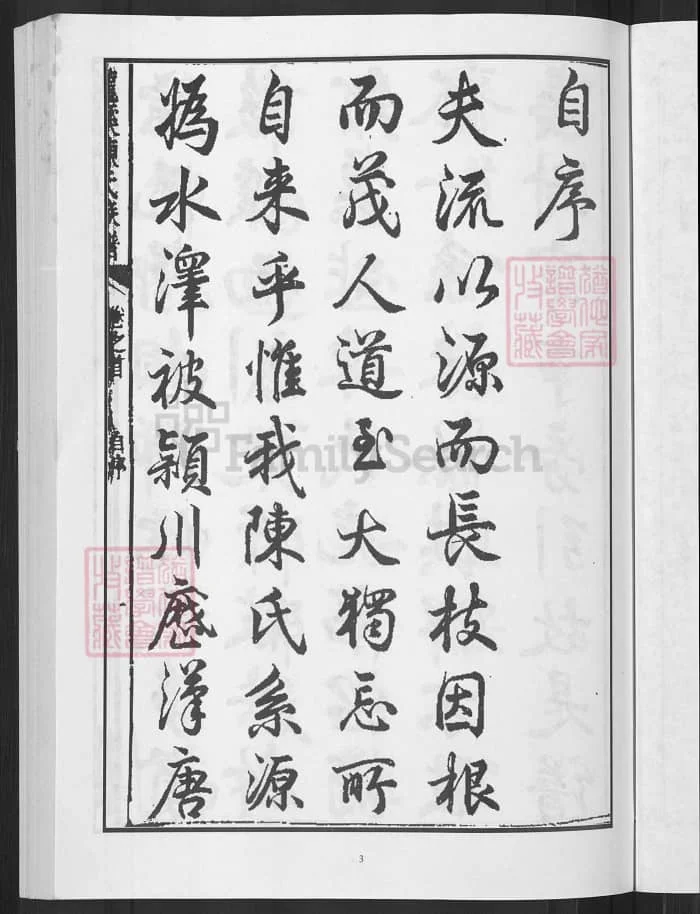 自序
夫流以源而長枝因根
而茂人道至大獨忘所
自来乎惟我陳氏系源
嬀水澤被潁川歷漢唐
陳氏族譜
卷之首
自序
FamilySearch
3